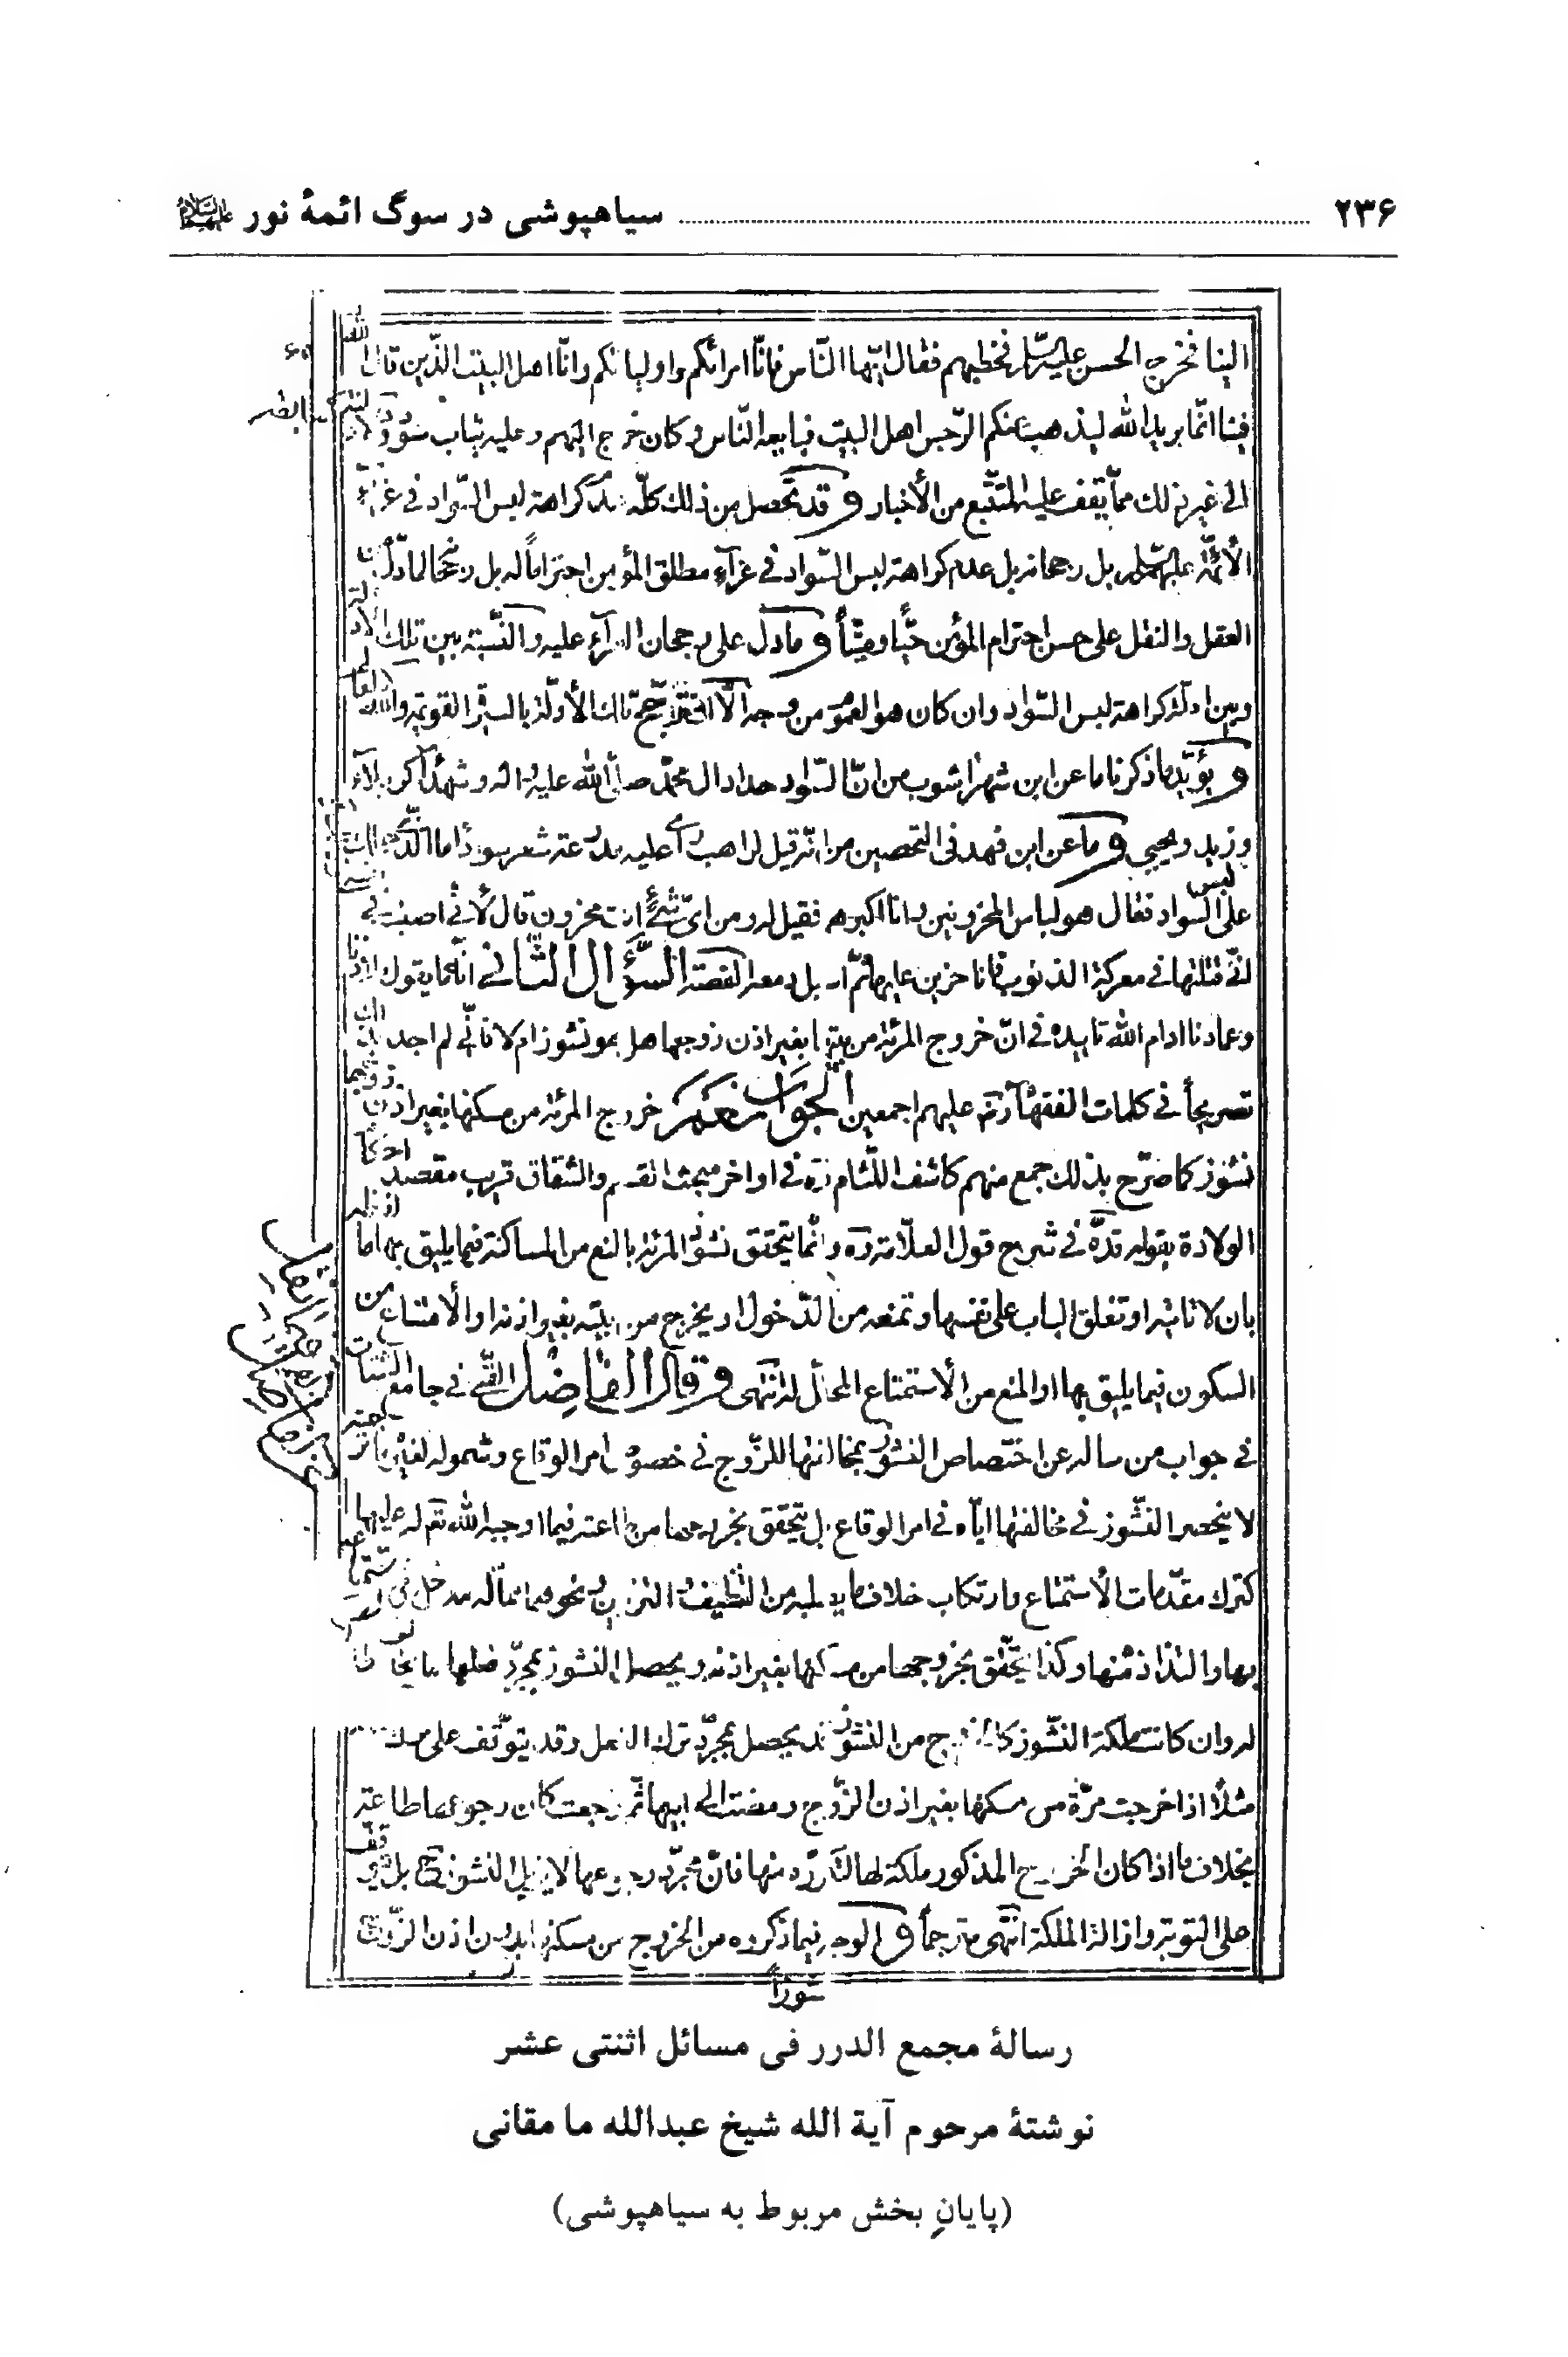 ۲۳۶ سیاهپوشی در سوگ ائمهٔ نور علیهم‌السلام
الینا فخرج الحسن علیه السلم فخطبهم فقال ایّها النّاس فانّا امرائکم واولیائکم وانّا اهل البیت الذّین قال الله
فینا انّما یرید الله لیذهب عنکم الرّجس اهل البیت فبایعه النّاس وکان خرج الیهم وعلیه ثیاب سود
الی غیر ذلك ممّا یقف علیه المتتّبع من الأخبار وقد تحصل من ذلك کلّه عدم کراهة لبس السّواد فی عزاء
الأئمّة علیهم السّلم بل رجحانه بل عدم کراهة لبس السّواد فی عزآء مطلق المؤمن احتراماً له بل رجحانه لما دلّ من
العقل والنقل علی حسن احترام المؤمن حیّاً ومیّتاً وما دلّ علی رجحان العزآء علیه والنّسبة بین تلك الادلة
وبین ادلّة کراهة لبس السّواد وان کان هو العموم من وجه الّا انّه ترجّح تلك الأدلّة بالسیرة القویمة والله العالم
ویؤیّد ما ذکرنا ما عن ابن شهراشوب من انّ السّواد حداد ال محمّد صلی الله علیه واله وشهدآء کربلاء
وزید ویحیی وما عن ابن فهد فی التحصین من انّه قیل لراهب رای علیه مدرعة شعر سوداء ما الّذی
علی لبس السّواد فقال هو لباس المحزونین وانا اکبرهم فقیل له ومن ایّ شئ انت محزون قال لأنّی اصبت فی
نفسی قتلتها فی معرکة الذنوب فانا حزین علیها ثم اسبل دمعه القصة السُّؤال الثّانی انّه ما یقول استاذنا
وعمادنا ادام الله تاییده فی انّ خروج المرئة من بیتها بغیر اذن زوجها هل هو نشوز ام لا فانّی لم اجد
تصریحاً فی کلمات الفقهآء رضوان الله علیهم اجمعین الجواب نعم خروج المرئة من مسکنها بغیر اذن زوجها
نشوز کما صرّح بذلك جمع منهم کاشف اللّثام ره فی اواخر مبحث القسم والشقاق قریب مقصد احکام
الولادة بقوله قدّه فی شرح قول العلّامة ره وانّما یتحقق نشوز المرئة بالمنع من المساکنة فیما یلیق بها اما
بان لا تاتیه او تغلق الباب علی نفسها وتمنعه من الدّخول او یخرج من بیته بغیر اذنه او الأمتناع من
السکون فیما یلیق بها او المنع من الأستمتاع المحلّل له انتهی وقال الفاضل القمّی فی جامع الشتات
فی جواب من ساله عن اختصاص النشوز بمخالفتها للزّوج فی خصوص امر الوقاع وشموله لغیره
لا ینحصر النّشوز فی مخالفتها ایّاه فی امر الوقاع بل یتحقق بخروجها من طاعته فیما اوجبه الله تعم له علیها
کترك مقدّمات الأستمتاع وارتکاب خلاف ما یطلبه من التنظیف والتزیین ونحوهما ممّا له مدخل فی
بها والتذاذ منها وکذا یتحقق بخروجها من مسکنها بغیر اذنه ویحصل النشوز بمجرّد فعلها ما یخالف
له وان کانت ملکة النّشوز کالخروج من النشوز قد یحصل بمجرّد ترك الفعل وقد یتوقّف علی
مثلاً اذا خرجت مرّة من مسکنها بغیر اذن الزّوج ومضت الی ابیها ثمّ رجعت کان رجوعها طاعته
بخلاف ما اذا کان الخروج المذکور ملکة لها لتکرّره منها فانّ مجرّد رجوعها لا یزیل النشوز ح بل یتوقّف
علی التوبة وازالة الملکة انتهی مترجماً والوجه فیما ذکروه من الخروج من مسکنه بدون اذن الزّوج
نشوزاً
رسالهٔ مجمع الدرر فی مسائل اثنتی عشر
نوشتهٔ مرحوم آیة الله شیخ عبدالله ما مقانی
(پایانِ بخش مربوط به سیاهپوشی)